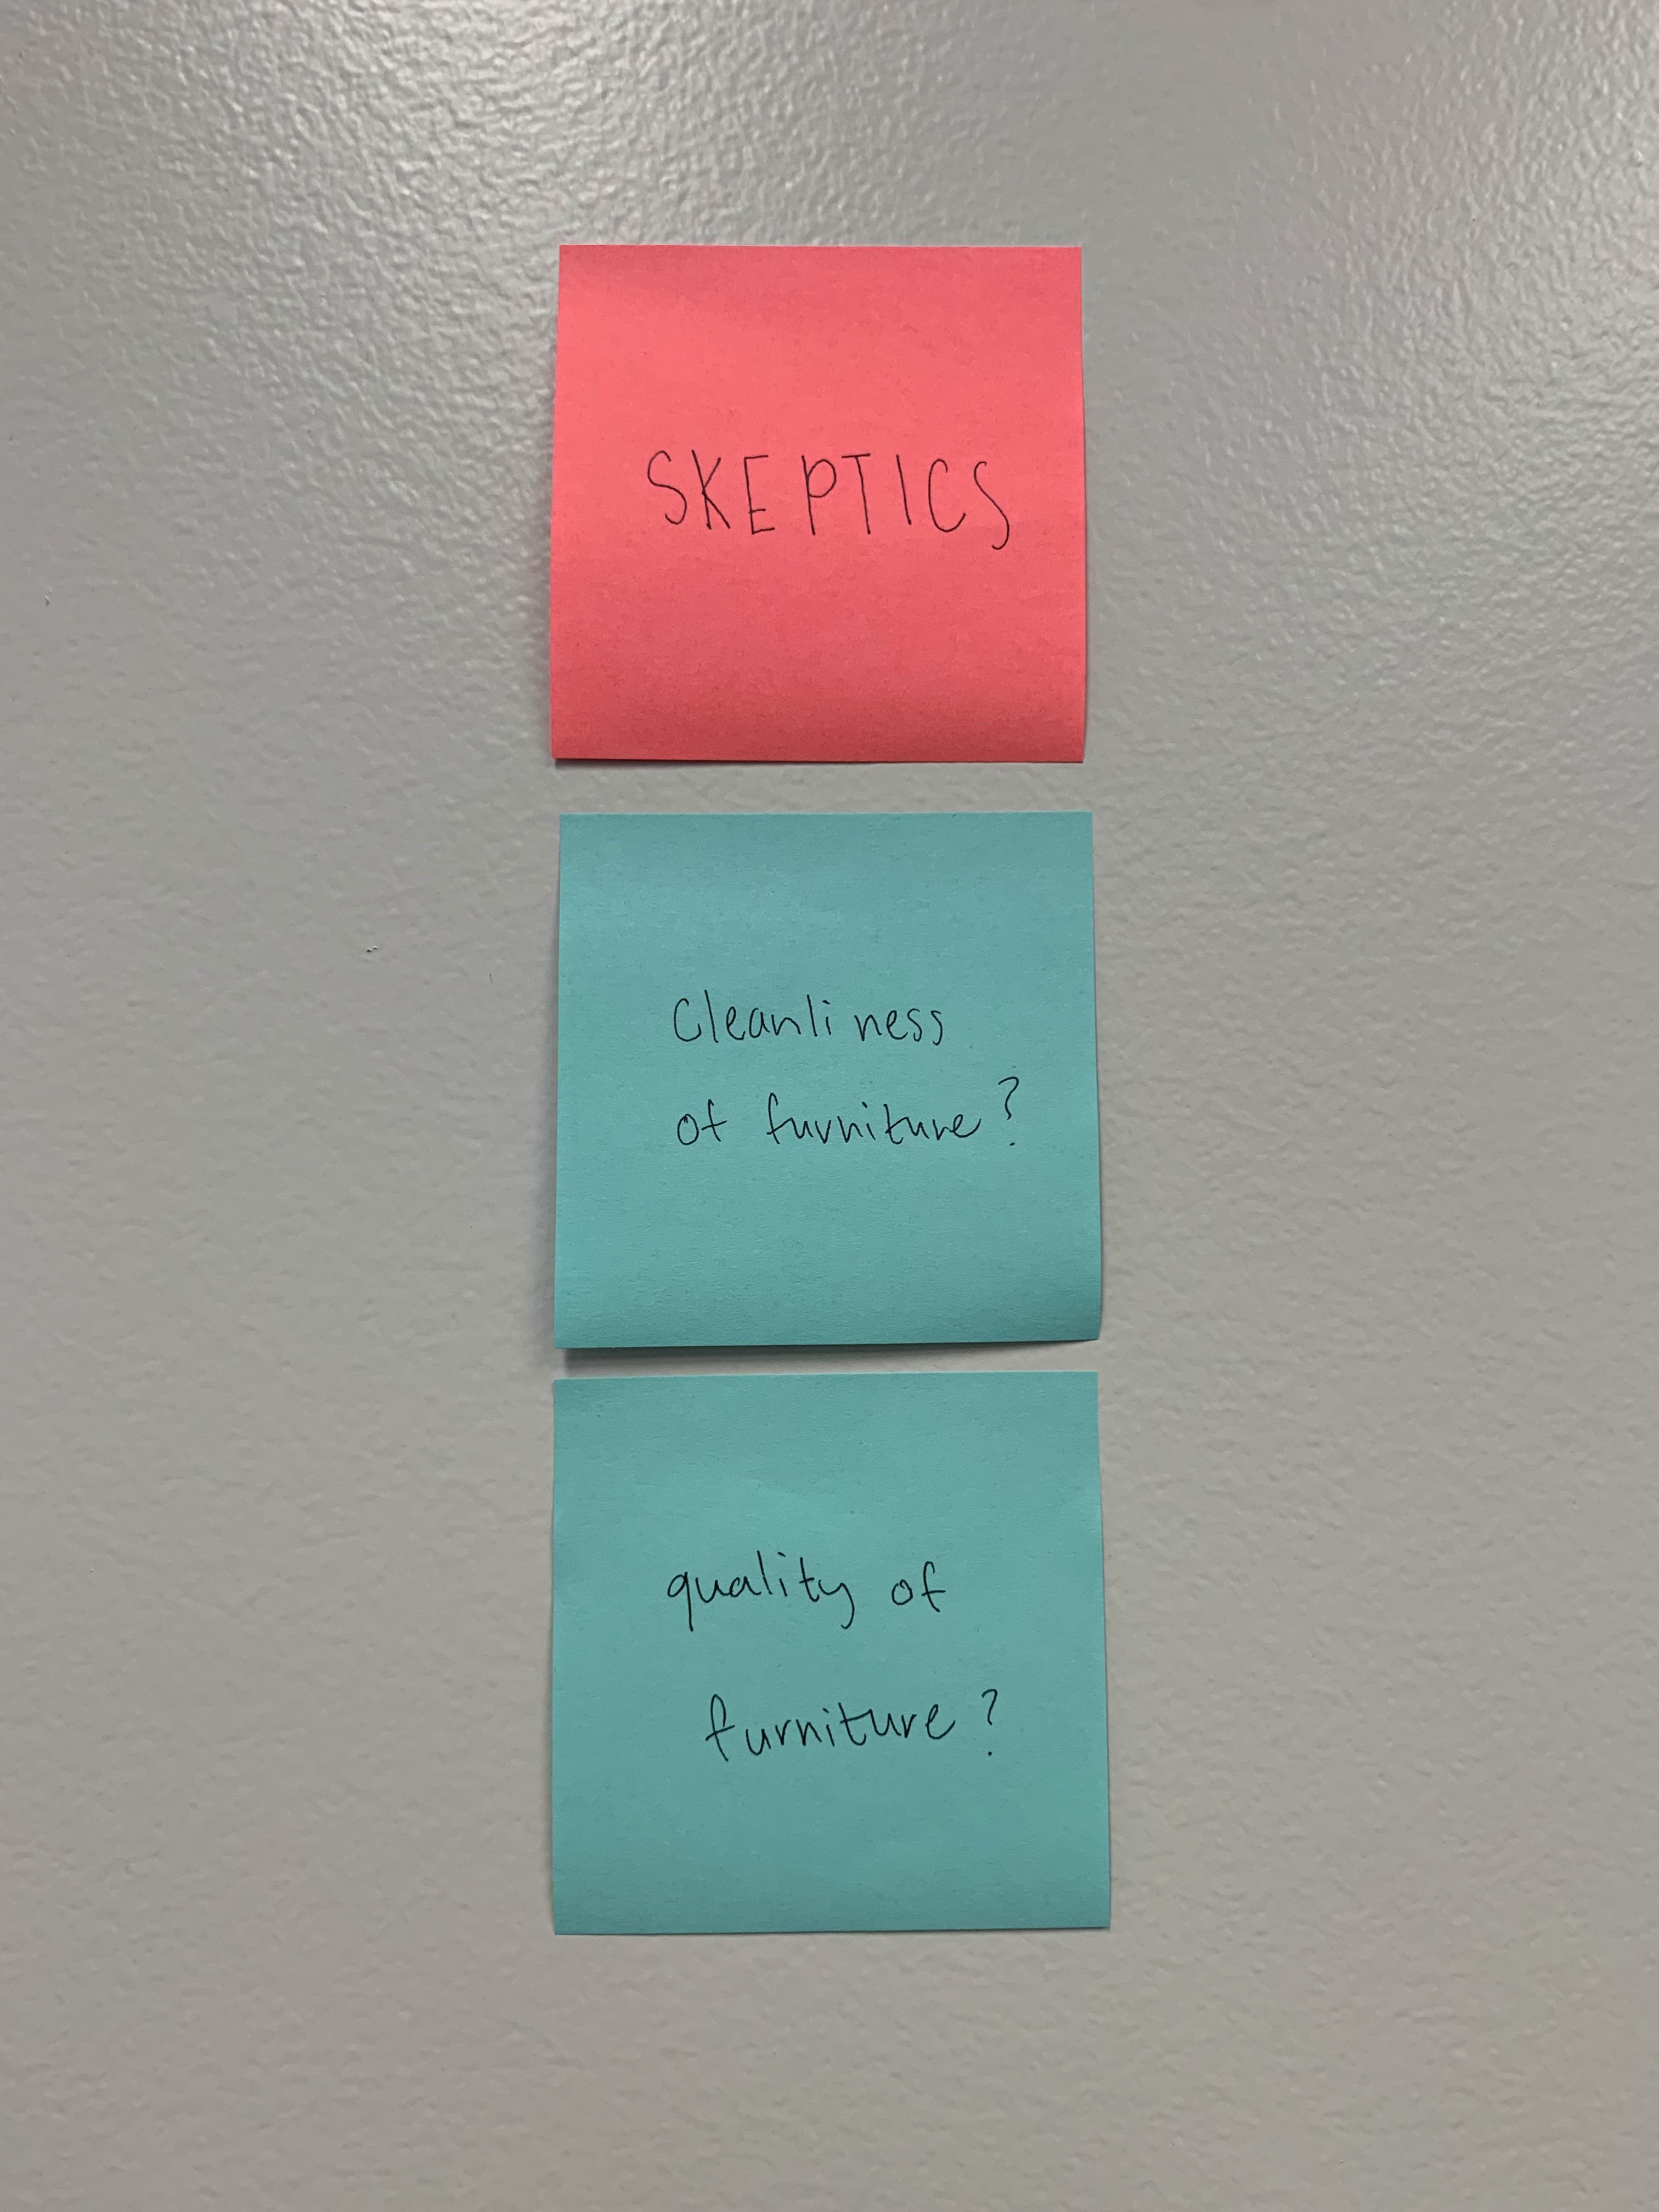 SKEPTICS
Cleanliness
of furniture?
quality of
furniture?